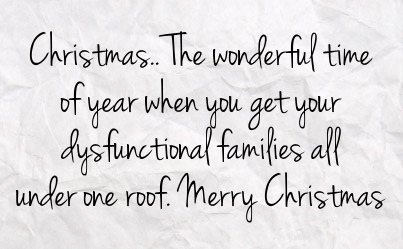 Christmas.. The wonderful time
of year when you get your
dysfunctional families all
under one roof. Merry Christmas